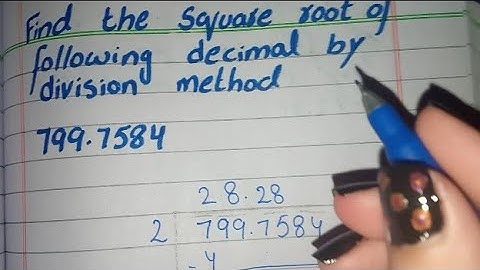 Find the Square root of
following decimal by
division method
799.7584
28.28
2 799.7584
-4